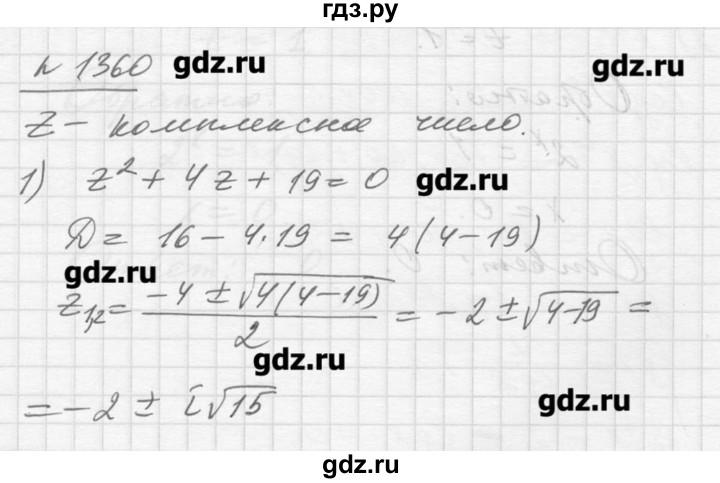 гдз.ру
№ 1360 gdz.ru gdz.ru
z – комплексное число.
1) z² + 4z + 19 = 0 gdz.ru
D = 16 – 4·19 = 4(4–19)
gdz.ru
z₁,₂ = (–4 ± √(4(4–19)))/2 = –2 ± √(4–19) =
gdz.ru
= –2 ± i√15 gdz.ru
gdz.ru